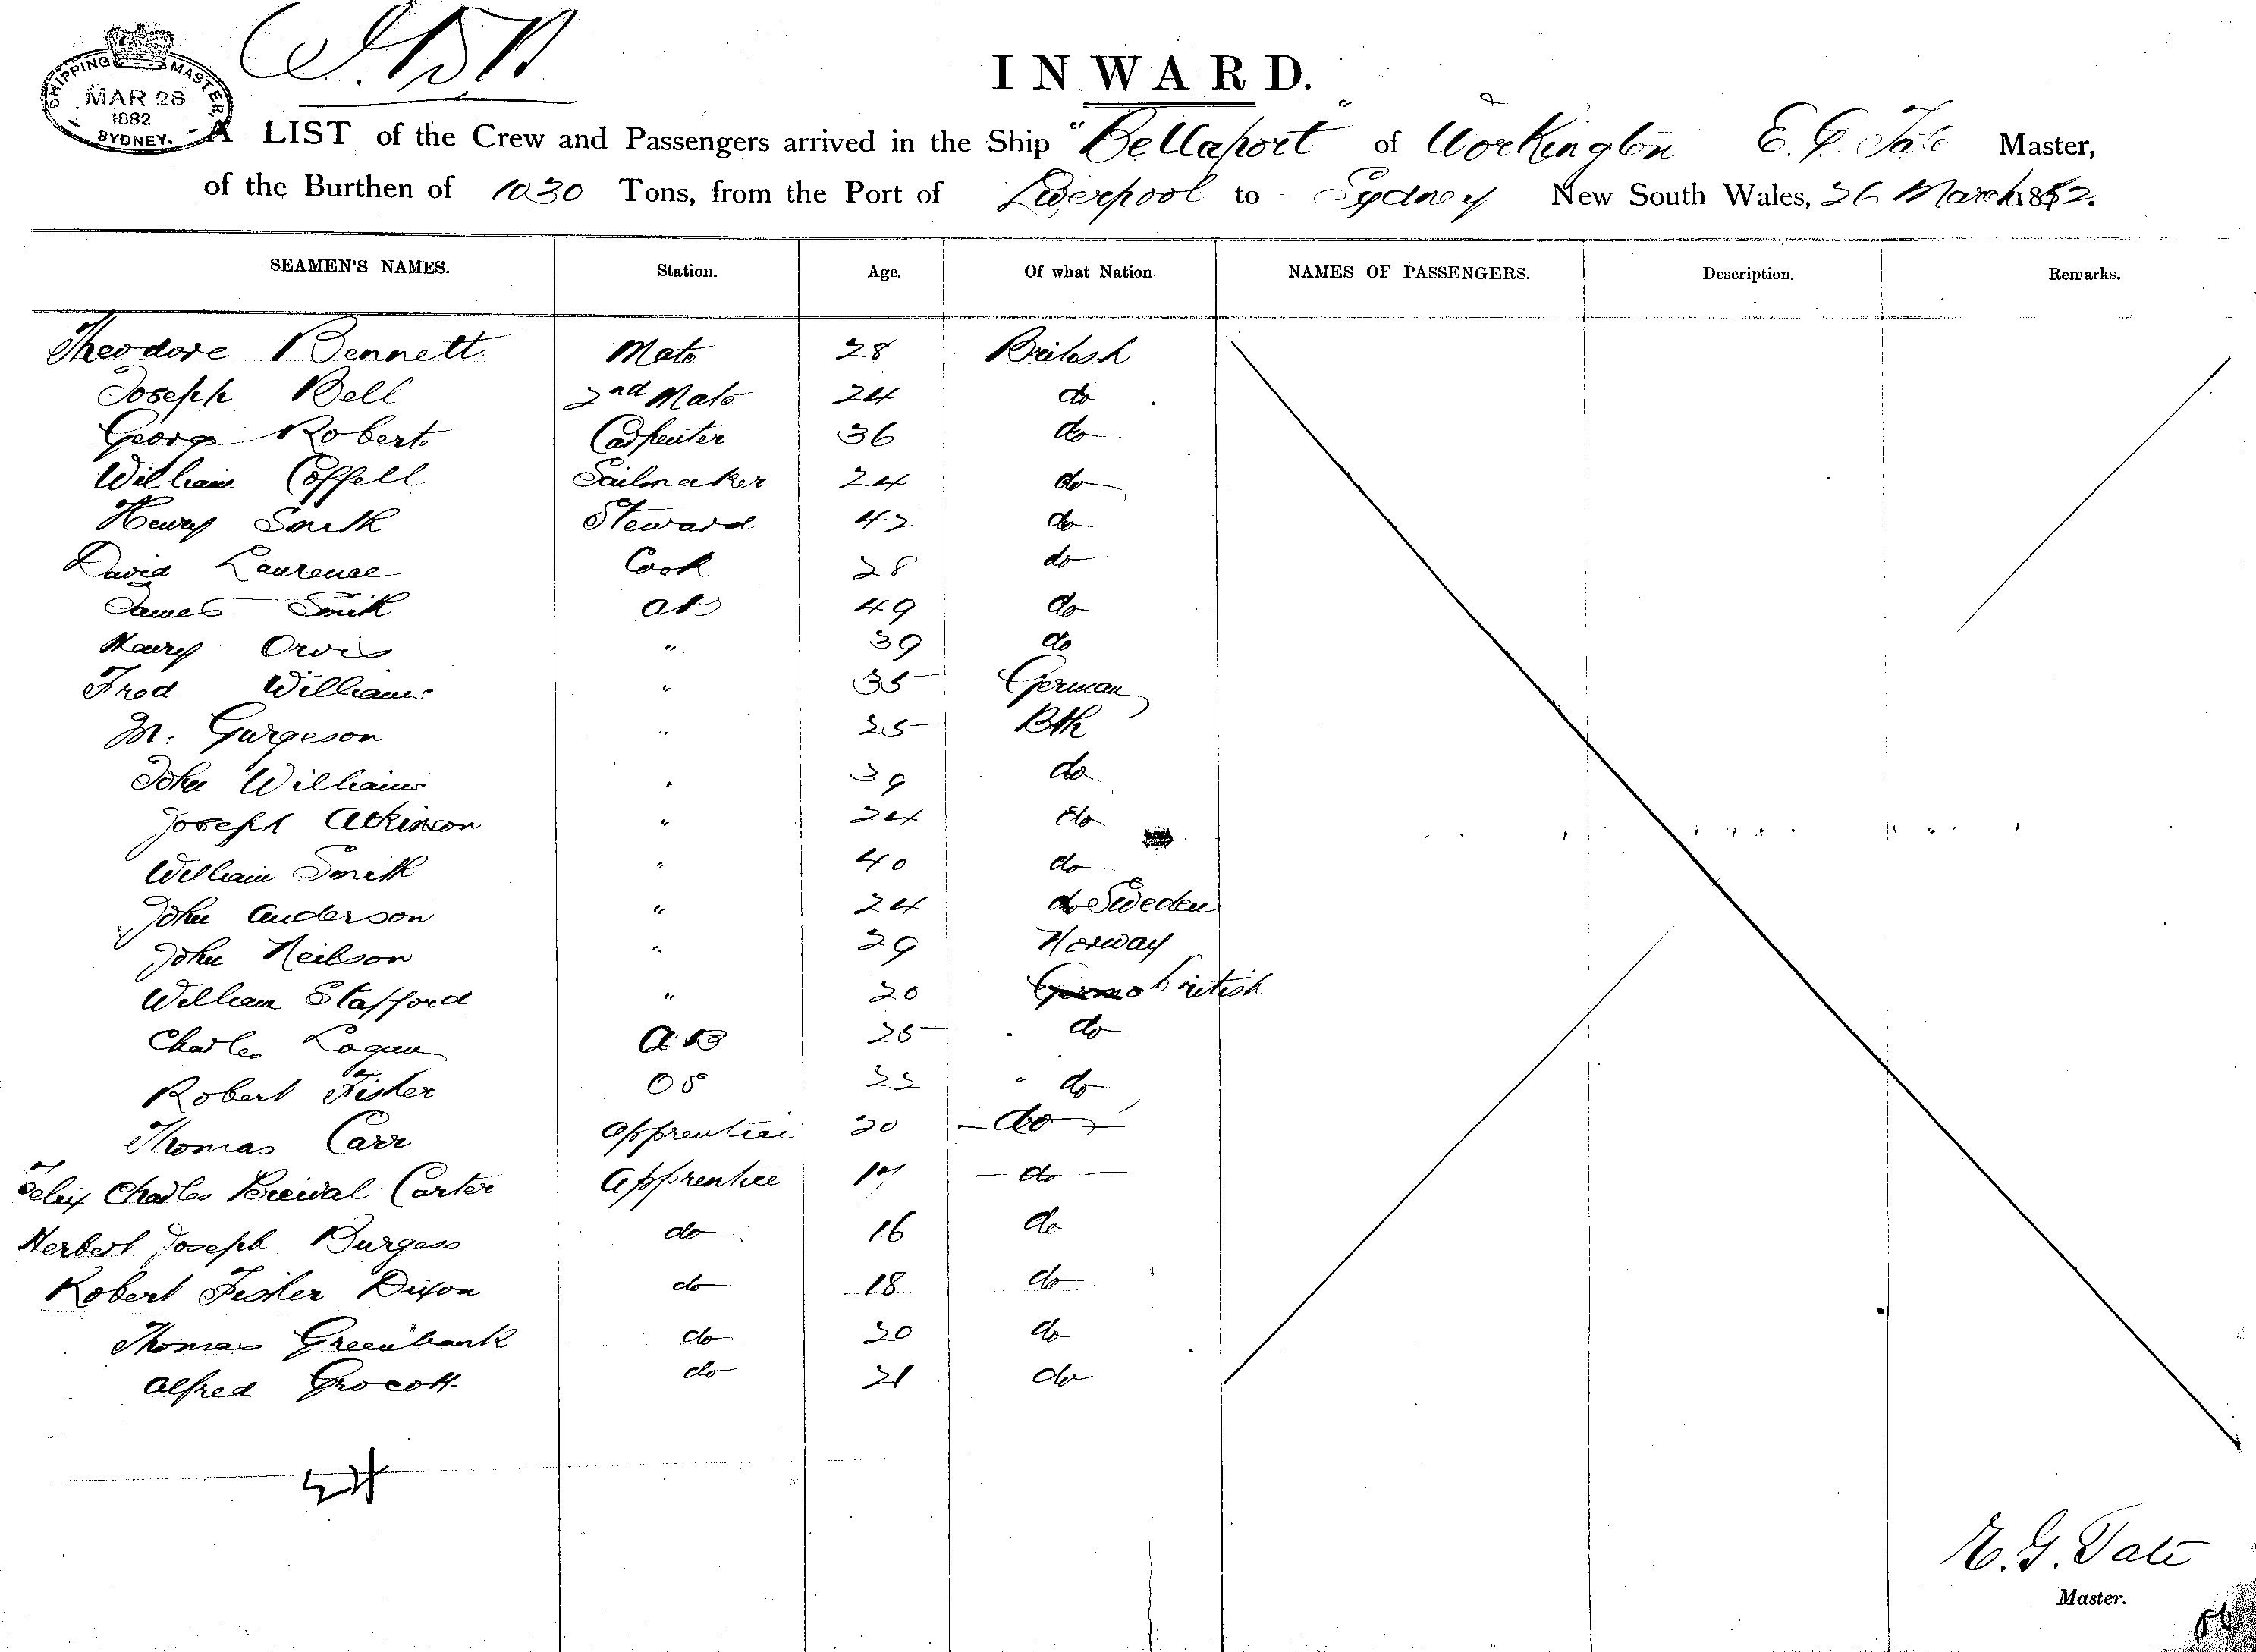 SHIPPING MASTER,
MAR 28
1882
SYDNEY.
INWARD.
A LIST of the Crew and Passengers arrived in the Ship "Bellaport" of Workington E. G. Tate Master,
of the Burthen of 1030 Tons, from the Port of Liverpool to Sydney New South Wales, 26 March 1882.
SEAMEN'S NAMES. Station. Age. Of what Nation. NAMES OF PASSENGERS. Description. Remarks.
Theodore Bennett Mate 28 British
Joseph Bell 2nd Mate 24 do
George Roberts Carpenter 36 do
William Coffell Sailmaker 24 do
Henry Smith Steward 42 do
David Laurence Cook 28 do
James Smith AB 49 do
Harry " 39 do
Fred Williams " 35 German
M. Gurgeson " 25 Bth
John Williams " 39 do
Joseph Atkinson " 24 do
William Smith " 40 do
John Anderson " 24 do Sweden
John Neilson " 29 Norway
William Stafford " 20 British
Charles Logan AB 25 do
Robert Fisher OS 22 " do
Thomas Carr Apprentice 20 do
Felix Charles Percival Carter Apprentice 17 do
Herbert Joseph Burgess do 16 do
Robert Fisher Dixon do 18 do
Thomas Greenbank do 20 do
Alfred Grocott do 21 do
24
E. G. Tate
Master.